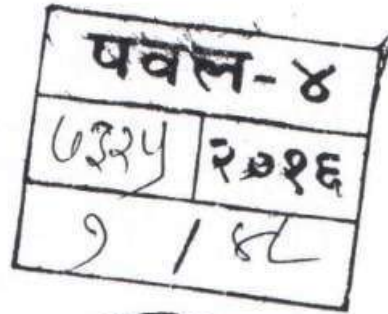 पवल-४
७३२५ २०१६
१ / ४८